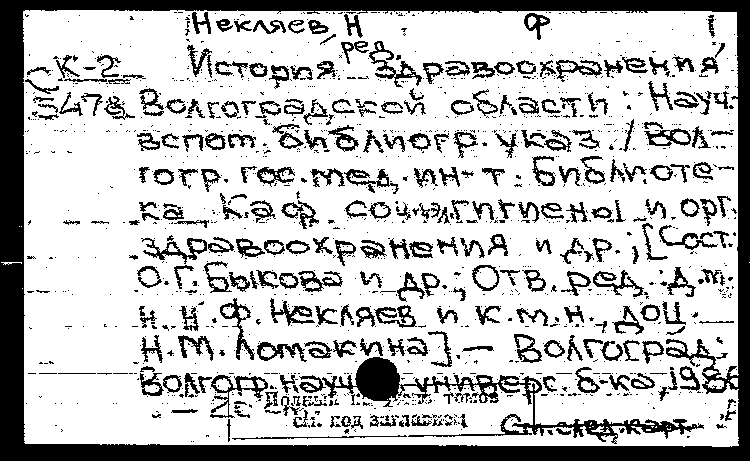 Некляев, Н Ф
ред.
К-2 История здравоохранения
С 5478 Волгоградской области : Науч.-
вспом. библиогр. указ. / Вол-
гогр. гос. мед. ин-т. Библиоте-
ка. Каф. соц. гигиены и орг.
здравоохранения и др. ; [Сост.:
О.Г. Быкова и др. ; Отв. ред. : д.м.
н. Н.Ф. Некляев и к.м.н., доц.
Н.М. Ломакина]. — Волгоград:
Волгогр. науч. универс. б-ка, 1986
Полный томов
см. под заглавием
См. след. карт.